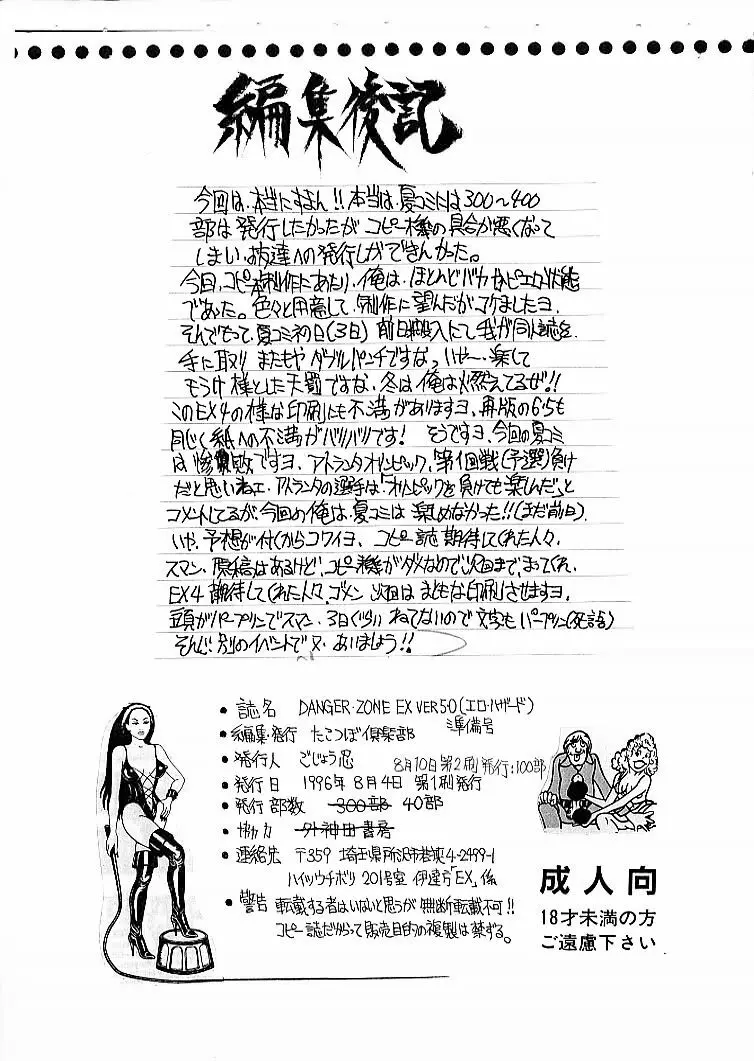 編集後記
今回は、本当にすまん!!本当は、夏コミには300〜400
部は発行したかったが コピー機の具合が悪くなって
しまい、お友達への発行しかできんかった。
今回、コピー本制作にあたり、俺は、ほとんどバカかピエロ状態
であった。色々と用意して、制作に望んだがコケましたヨ、
そんでもって、夏コミ初日(3日) 前日搬入にて我が同人誌を、
手に取り またもや ダブルパンチですなっ いやー、楽して
もうけ様とした天罰ですな、冬は俺は燃えてるぜ!!
このEX4の様な印刷にも不満がありますヨ、再版の6.5も
同じく紙への不満がバリバリです! そうですヨ、今回の夏コミ
は惨敗ですヨ、アトランタオリンピック、第1回戦(予選)負け
だと思いねェ、アトランタの選手は「オリンピックを負けても楽しんだ」と
コメントしてるが、今回の俺は、夏コミは 楽しめなかった!!(まだ前日)、
いや、予想が付くからコワイヨ、コピー誌 期待してくれた人々、
スマン、原稿はあるけど、コピー機がダメなので次回まで、まってくれ、
EX4 期待してくれた人々、ゴメン 次回は まともな印刷させますヨ、
頭がパープリンでスマン、3日ぐらい ねてないので 文字も パープリン(死語)
そんじゃ 別のイベントで 又、あいましょう!!
・誌名 DANGER・ZONE EX VER5.0(エロ・ハザード)
準備号
・編集・発行 たこつぼ倶楽部
・発行人 ごじょう忍
8月10日第2刷発行:100部
・発行日 1996年8月4日 第1刷発行
・発行部数 300部 40部
外神田書房
・連絡先 〒359 埼玉県所沢市 4-2499-1
ハイツウチボリ 201号室 伊達方「EX」係
・警告 転載する者はいないと思うが 無断転載不可!!
コピー誌だからって販売目的の複製は禁ずる。
成人向
18才未満の方
ご遠慮下さい